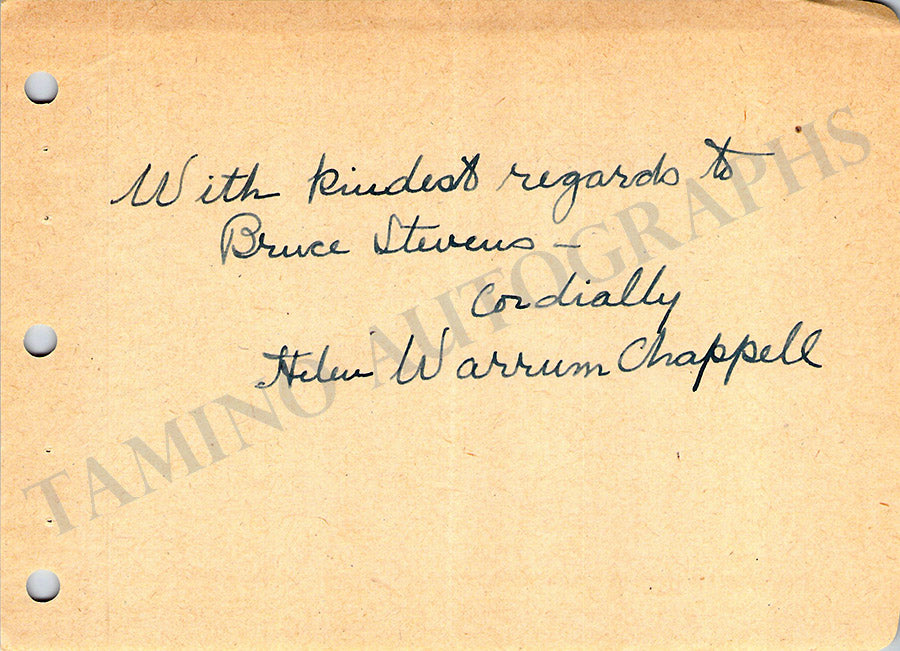 With kindest regards to
Bruce Stevens –
Cordially
Helen Warrum Chappell
TAMINO AUTOGRAPHS